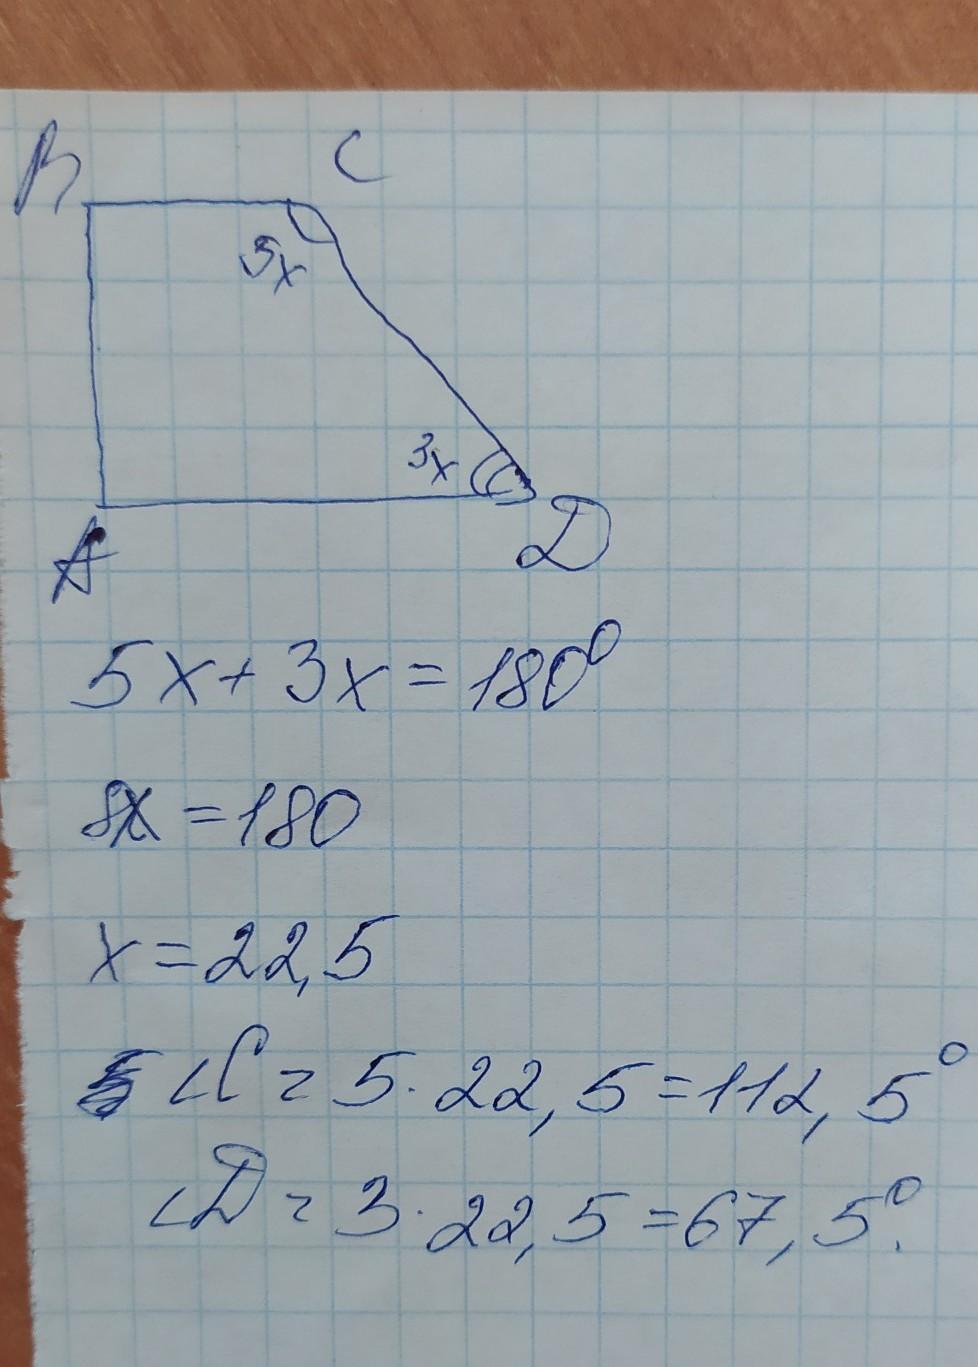 B C
5x
3x
A D
5x + 3x = 180°
8x = 180
x = 22,5
∠C = 5 · 22,5 = 112,5°
∠D = 3 · 22,5 = 67,5°.